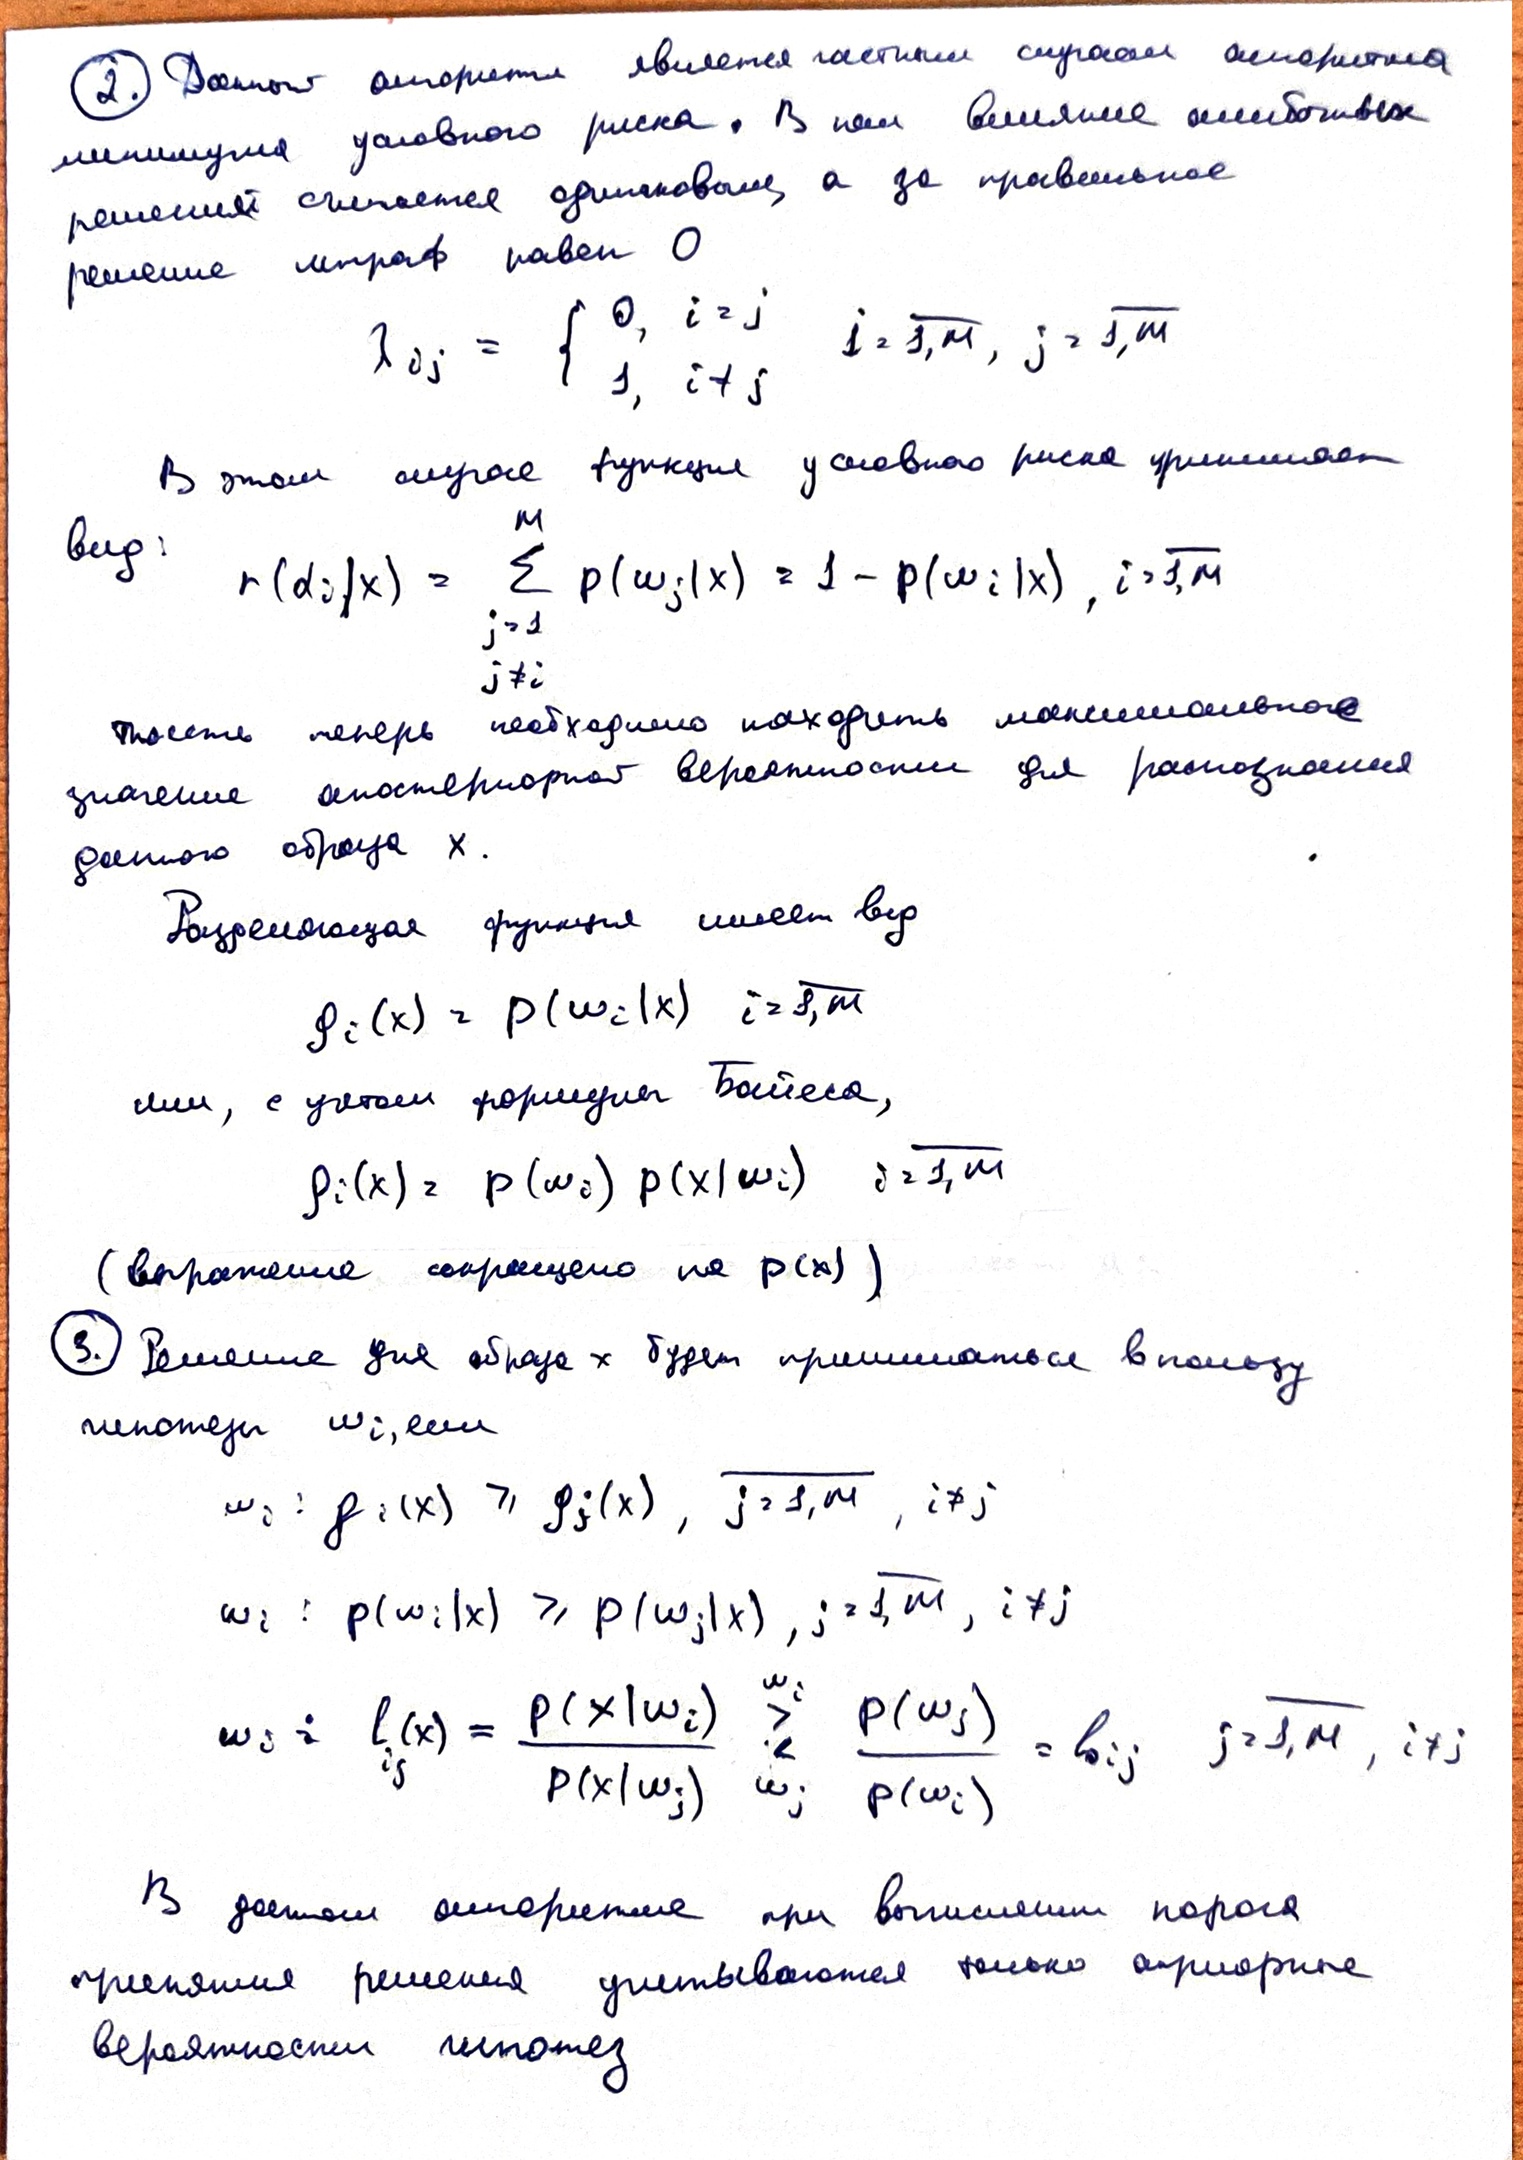 2. Данный алгоритм является частным случаем алгоритма
минимума условного риска. В нем влияние ошибочных
решений считается одинаковым, а за правильное
решение штраф равен 0
λij = { 0, i = j
1, i ≠ j i = 1,M, j = 1,M
В этом случае функция условного риска принимает
вид:
r(αi|x) = Σ (j=1, j≠i; M) p(ωj|x) = 1 - p(ωi|x), i = 1,M
то есть теперь необходимо находить максимальное
значение апостериорной вероятности для распознания
данного образа x.
Разделяющая функция имеет вид
gi(x) = p(ωi|x) i = 1,M
или, с учетом формулы Байеса,
gi(x) = p(ωi) p(x|ωi) i = 1,M
(выражение сокращено на p(x))
3. Решение для образа x будет приниматься в пользу
гипотезы ωi, если
ωi : gi(x) ≥ gj(x), j = 1,M, i ≠ j
ωi : p(ωi|x) ≥ p(ωj|x), j = 1,M, i ≠ j
ωi : lij(x) = p(x|ωi) / p(x|ωj) ωi > < ωj p(ωj) / p(ωi) = l0ij j = 1,M, i ≠ j
В данном алгоритме при вычислении порога
принятия решения учитываются только априорные
вероятности гипотез